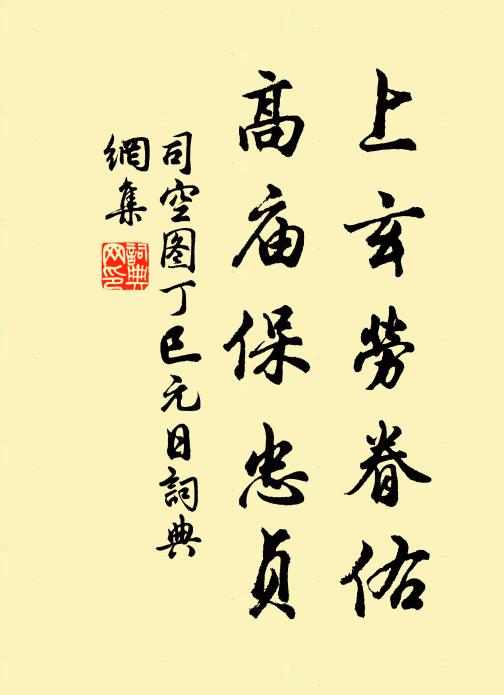 上玄勞眷佑
高庙保忠贞
司空图丁巳元日詞典
網集
詞典
网印